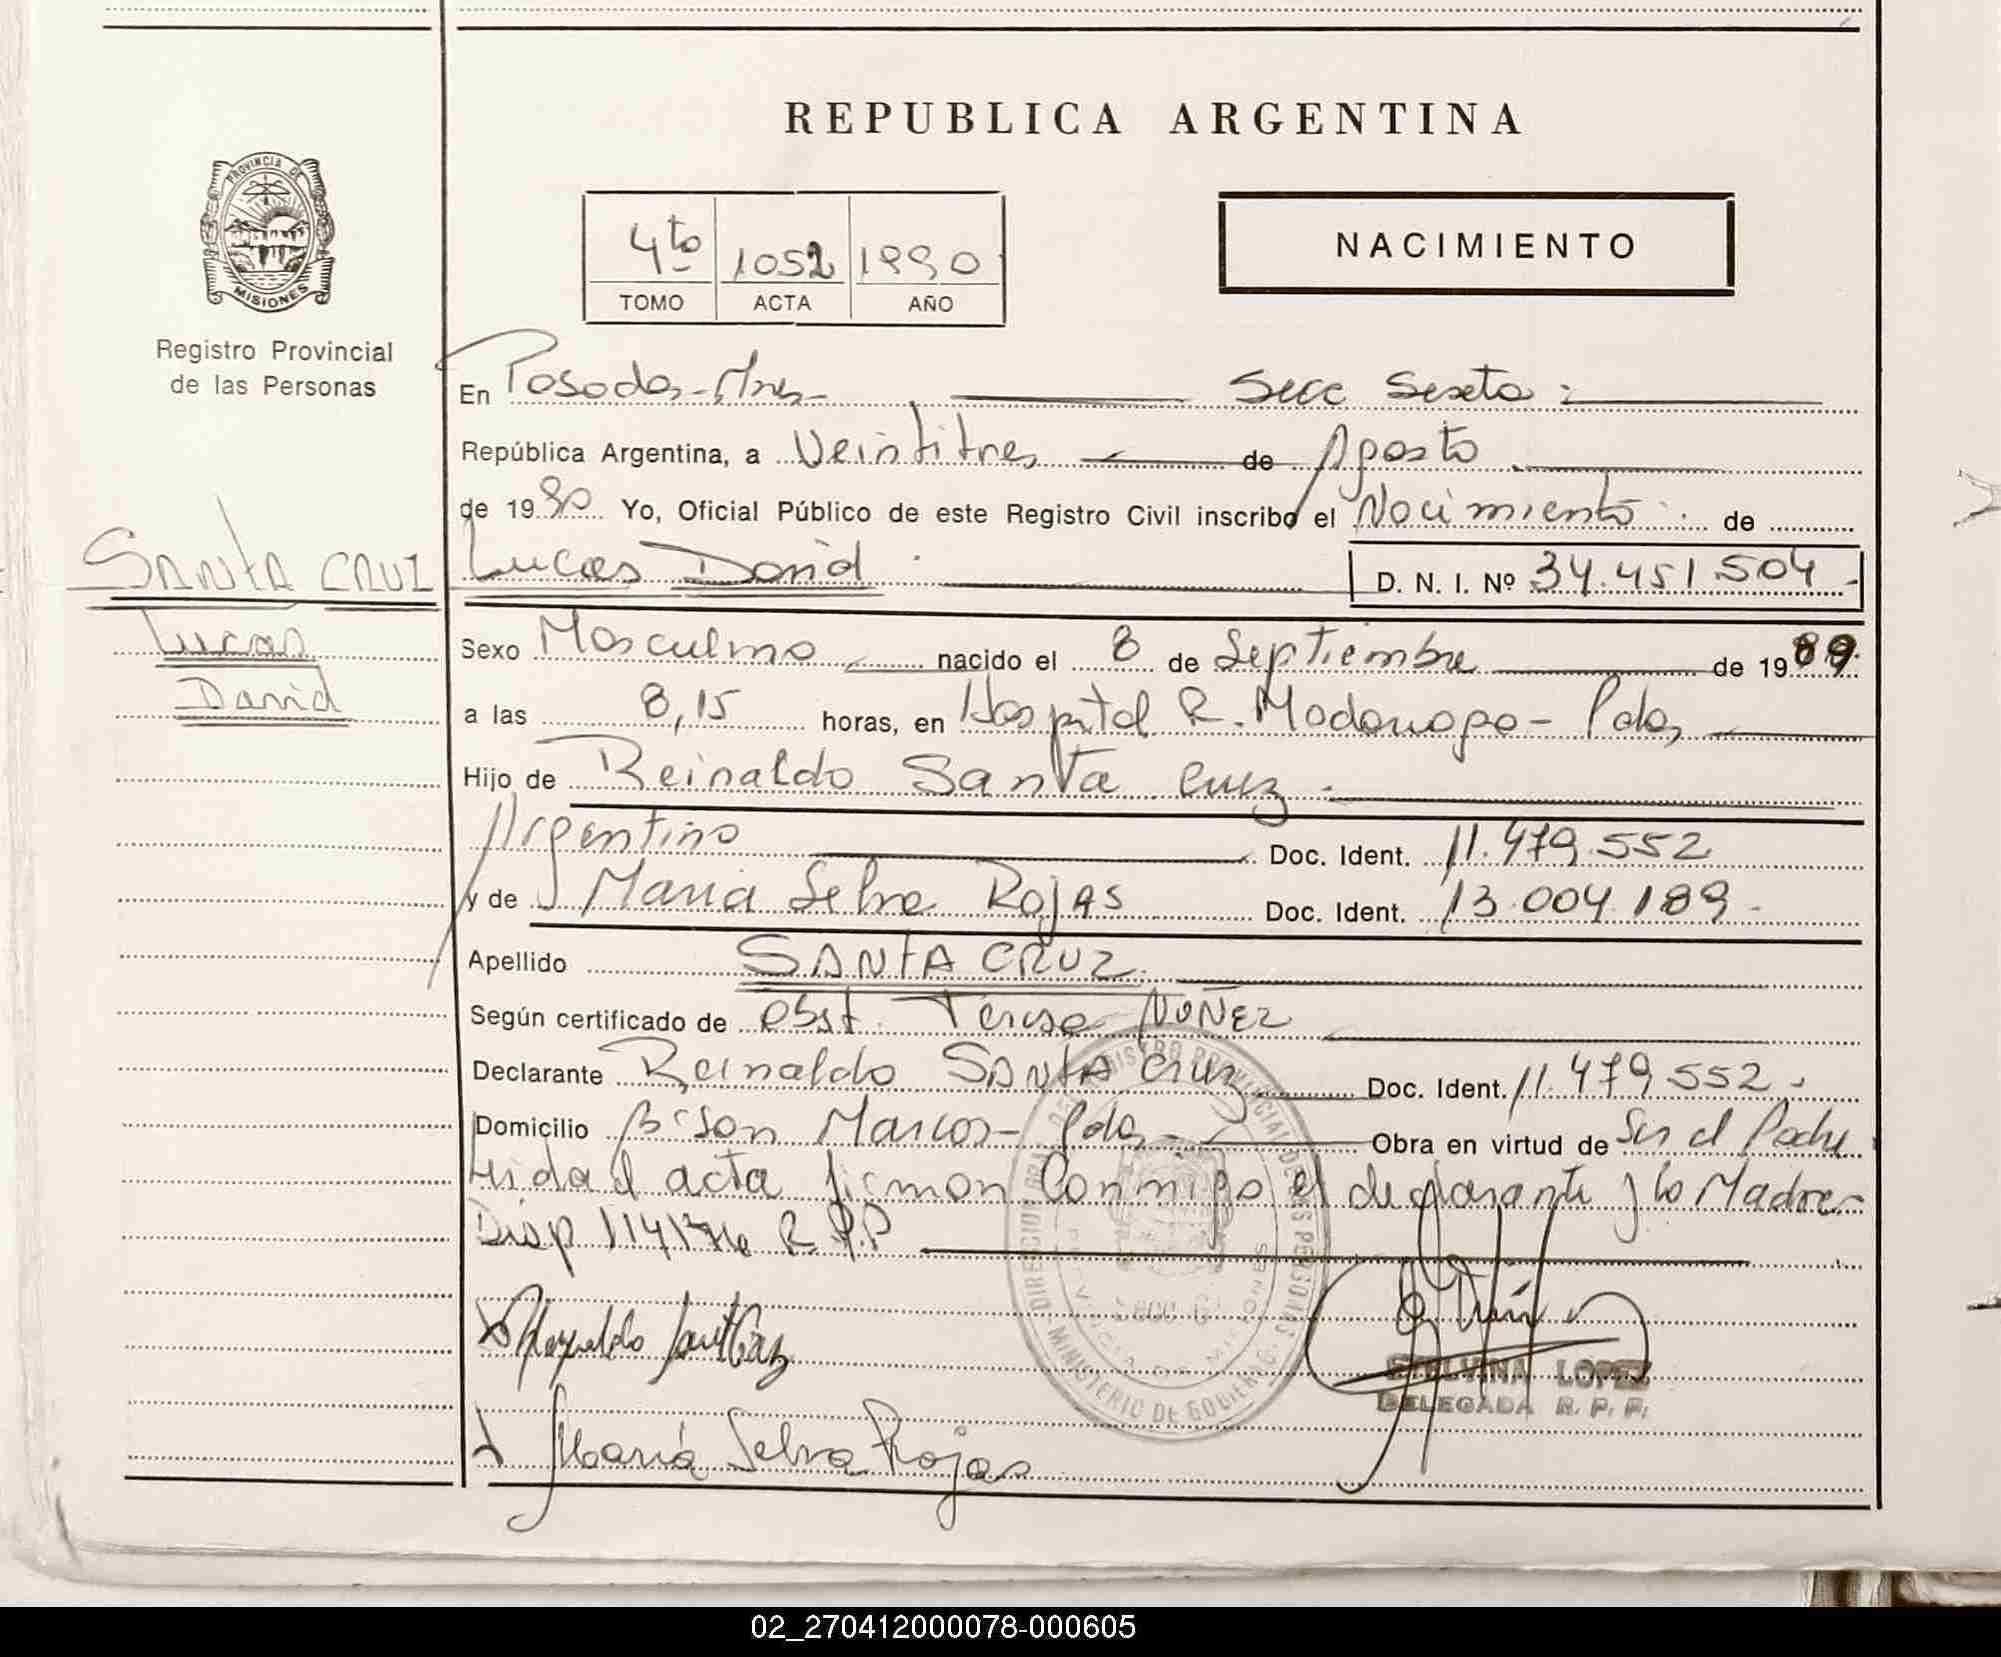 REPUBLICA ARGENTINA
PROVINCIA DE
MISIONES
Registro Provincial
de las Personas
4to 1052 1990
TOMO ACTA AÑO
NACIMIENTO
En Posadas-Mnes- Secc Sexta:
República Argentina, a Veintitres de Agosto
de 1990 Yo, Oficial Público de este Registro Civil inscribo el Nacimiento de
SANTA CRUZ
Lucas
David
Lucas David D. N. I. Nº 34.451.504-
Sexo Masculino nacido el 8 de Septiembre de 1989.
a las 8,15 horas, en Hospital R. Madariaga- Pdas,
Hijo de Reinaldo Santa Cruz.
Argentino Doc. Ident. 11.479.552
y de Maria Selva Rojas Doc. Ident. 13.004.189-
Apellido SANTA CRUZ.
Según certificado de Obst. Teresa NUÑEZ
Declarante Reinaldo SANTA Cruz Doc. Ident. 11.479.552.
Domicilio Bº San Marcos- Pdas- Obra en virtud de Ser el Padre
Leida el acta firman Conmigo el declarante y la Madre
Disp 114/76 R.P.P
Reynaldo Santa Cruz
María Selva Rojas
ETELVINA LOPEZ
DELEGADA R. P. P.
MINISTERIO DE GOBIERNO
02_270412000078-000605